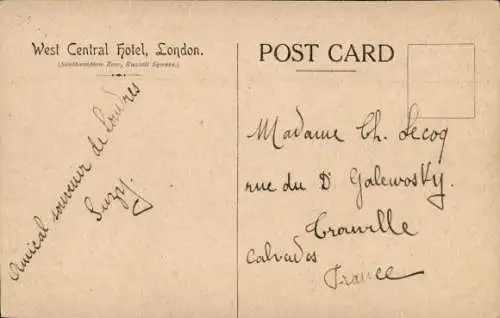 West Central Hotel, London.
(Southampton Row, Russell Square.)
Amical souvenir de Londres
Suzy.
POST CARD
Madame Ch. Lecoq
rue du Dr Galewosky.
Trouville
Calvados
France